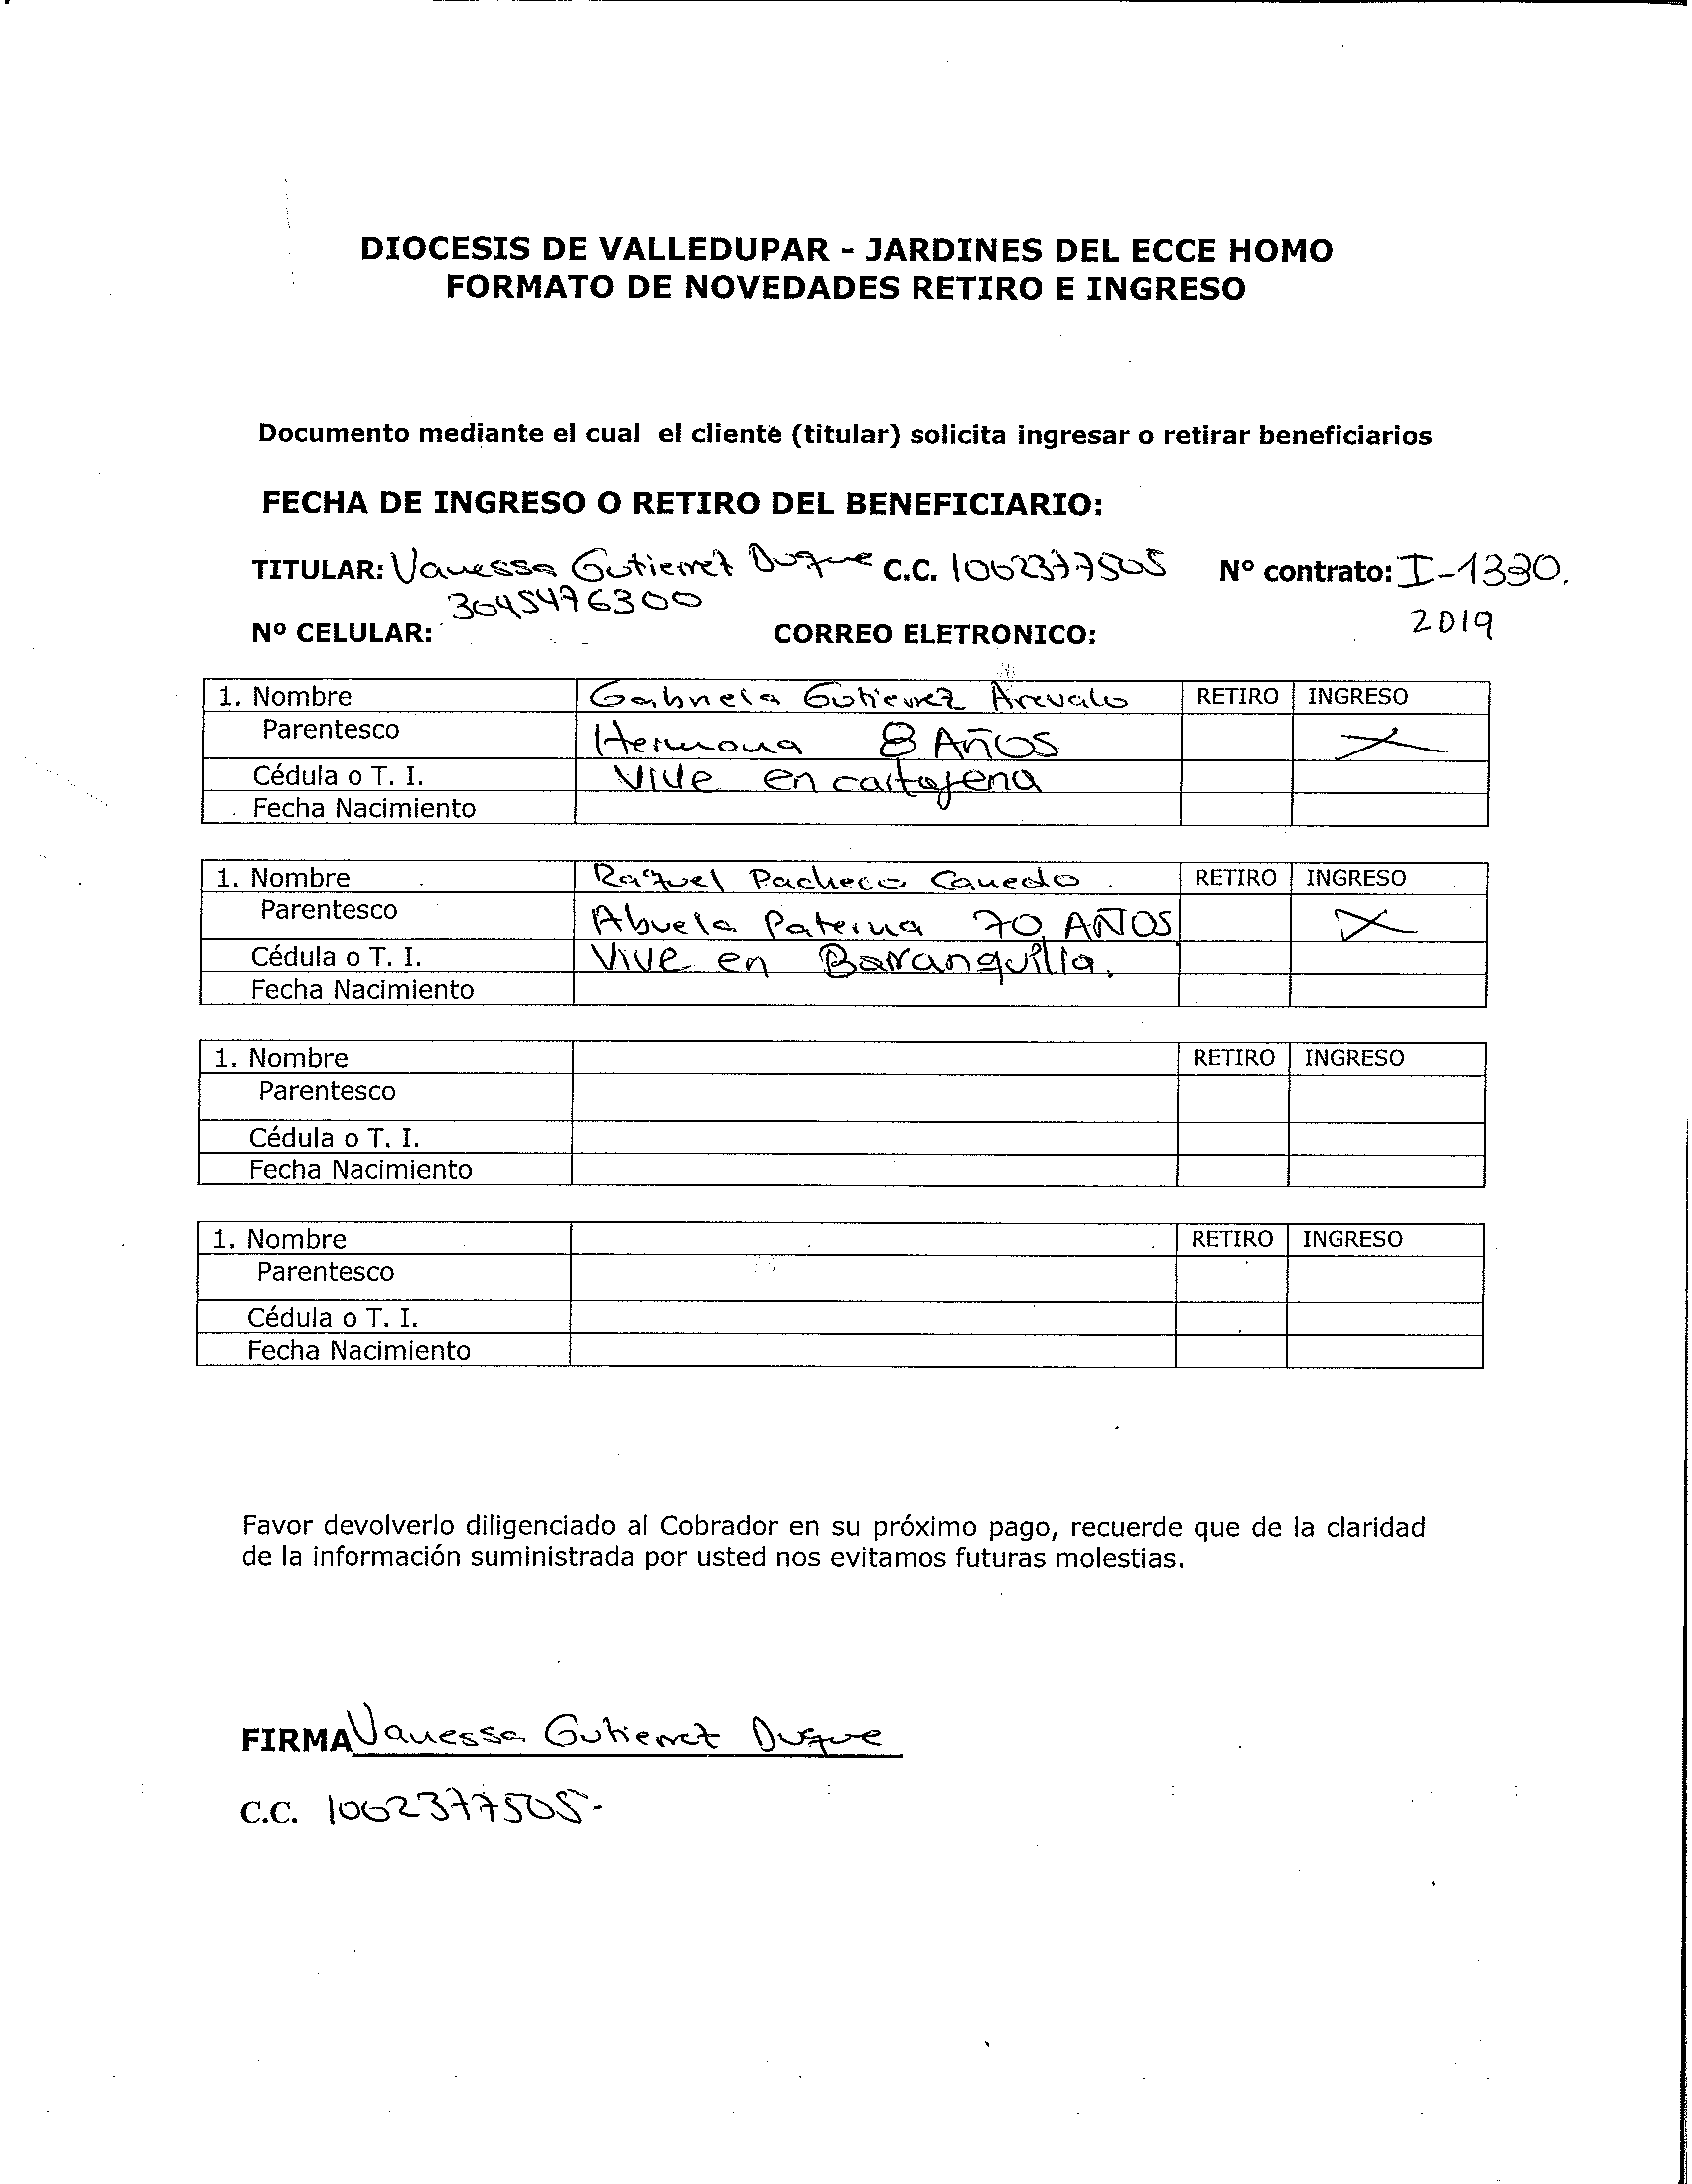 DIOCESIS DE VALLEDUPAR - JARDINES DEL ECCE HOMO
FORMATO DE NOVEDADES RETIRO E INGRESO
Documento mediante el cual el cliente (titular) solicita ingresar o retirar beneficiarios
FECHA DE INGRESO O RETIRO DEL BENEFICIARIO:
TITULAR: Vanessa Gutierrez Duque C.C. 1062377505 Nº contrato: I-1330.
3045476300 2019
Nº CELULAR: CORREO ELETRONICO:
1. Nombre Gabriela Gutierrez Arevalo RETIRO INGRESO
Parentesco Hermana 8 AÑOS X
Cédula o T. I. Vive en cartajena
Fecha Nacimiento
1. Nombre Raquel Pacheco Canedo RETIRO INGRESO
Parentesco Abuela Paterna 70 AÑOS X
Cédula o T. I. Vive en Barranquilla.
Fecha Nacimiento
1. Nombre RETIRO INGRESO
Parentesco
Cédula o T. I.
Fecha Nacimiento
1. Nombre RETIRO INGRESO
Parentesco
Cédula o T. I.
Fecha Nacimiento
Favor devolverlo diligenciado al Cobrador en su próximo pago, recuerde que de la claridad
de la información suministrada por usted nos evitamos futuras molestias.
FIRMA Vanessa Gutierrez Duque
C.C. 1062377505-